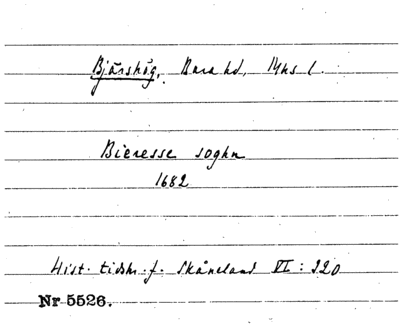 Bjärshög, Bara hd, Mhs l.
Bieresse soghn
1682
Hist. tidskr. f. Skåneland VI : 320
Nr 5526.